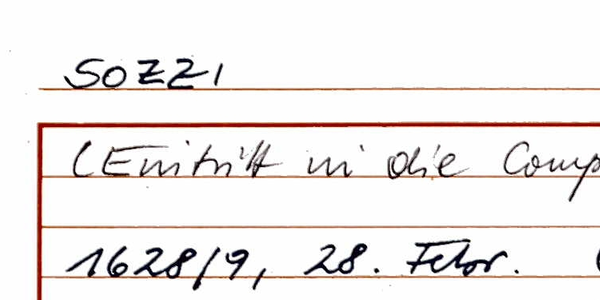 SOZZI
(Eintritt in die Comp
1628/9, 28. Febr. (